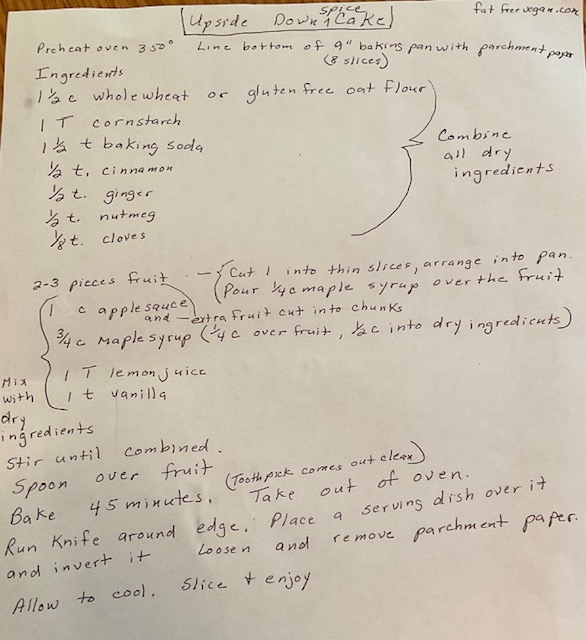 Upside Down spice Cake
fat free vegan.com
Preheat oven 350° Line bottom of 9" baking pan with parchment paper
(8 slices)
Ingredients
1 ½ c whole wheat or gluten free oat flour
1 T cornstarch
1 ½ t baking soda
½ t. cinnamon
½ t. ginger
½ t. nutmeg
⅛ t. cloves
Combine
all dry
ingredients
2-3 pieces fruit - Cut 1 into thin slices, arrange into pan.
Pour ¼ c maple syrup over the fruit
1 c applesauce
and - extra fruit cut into chunks
¾ c Maple syrup (¼ c over fruit, ½ c into dry ingredients)
1 T lemon juice
1 t vanilla
Mix
with
dry
ingredients
Stir until combined.
Spoon over fruit
Bake 45 minutes. (Toothpick comes out clean) Take out of oven.
Run Knife around edge. Place a serving dish over it
and invert it Loosen and remove parchment paper.
Allow to cool. Slice + enjoy